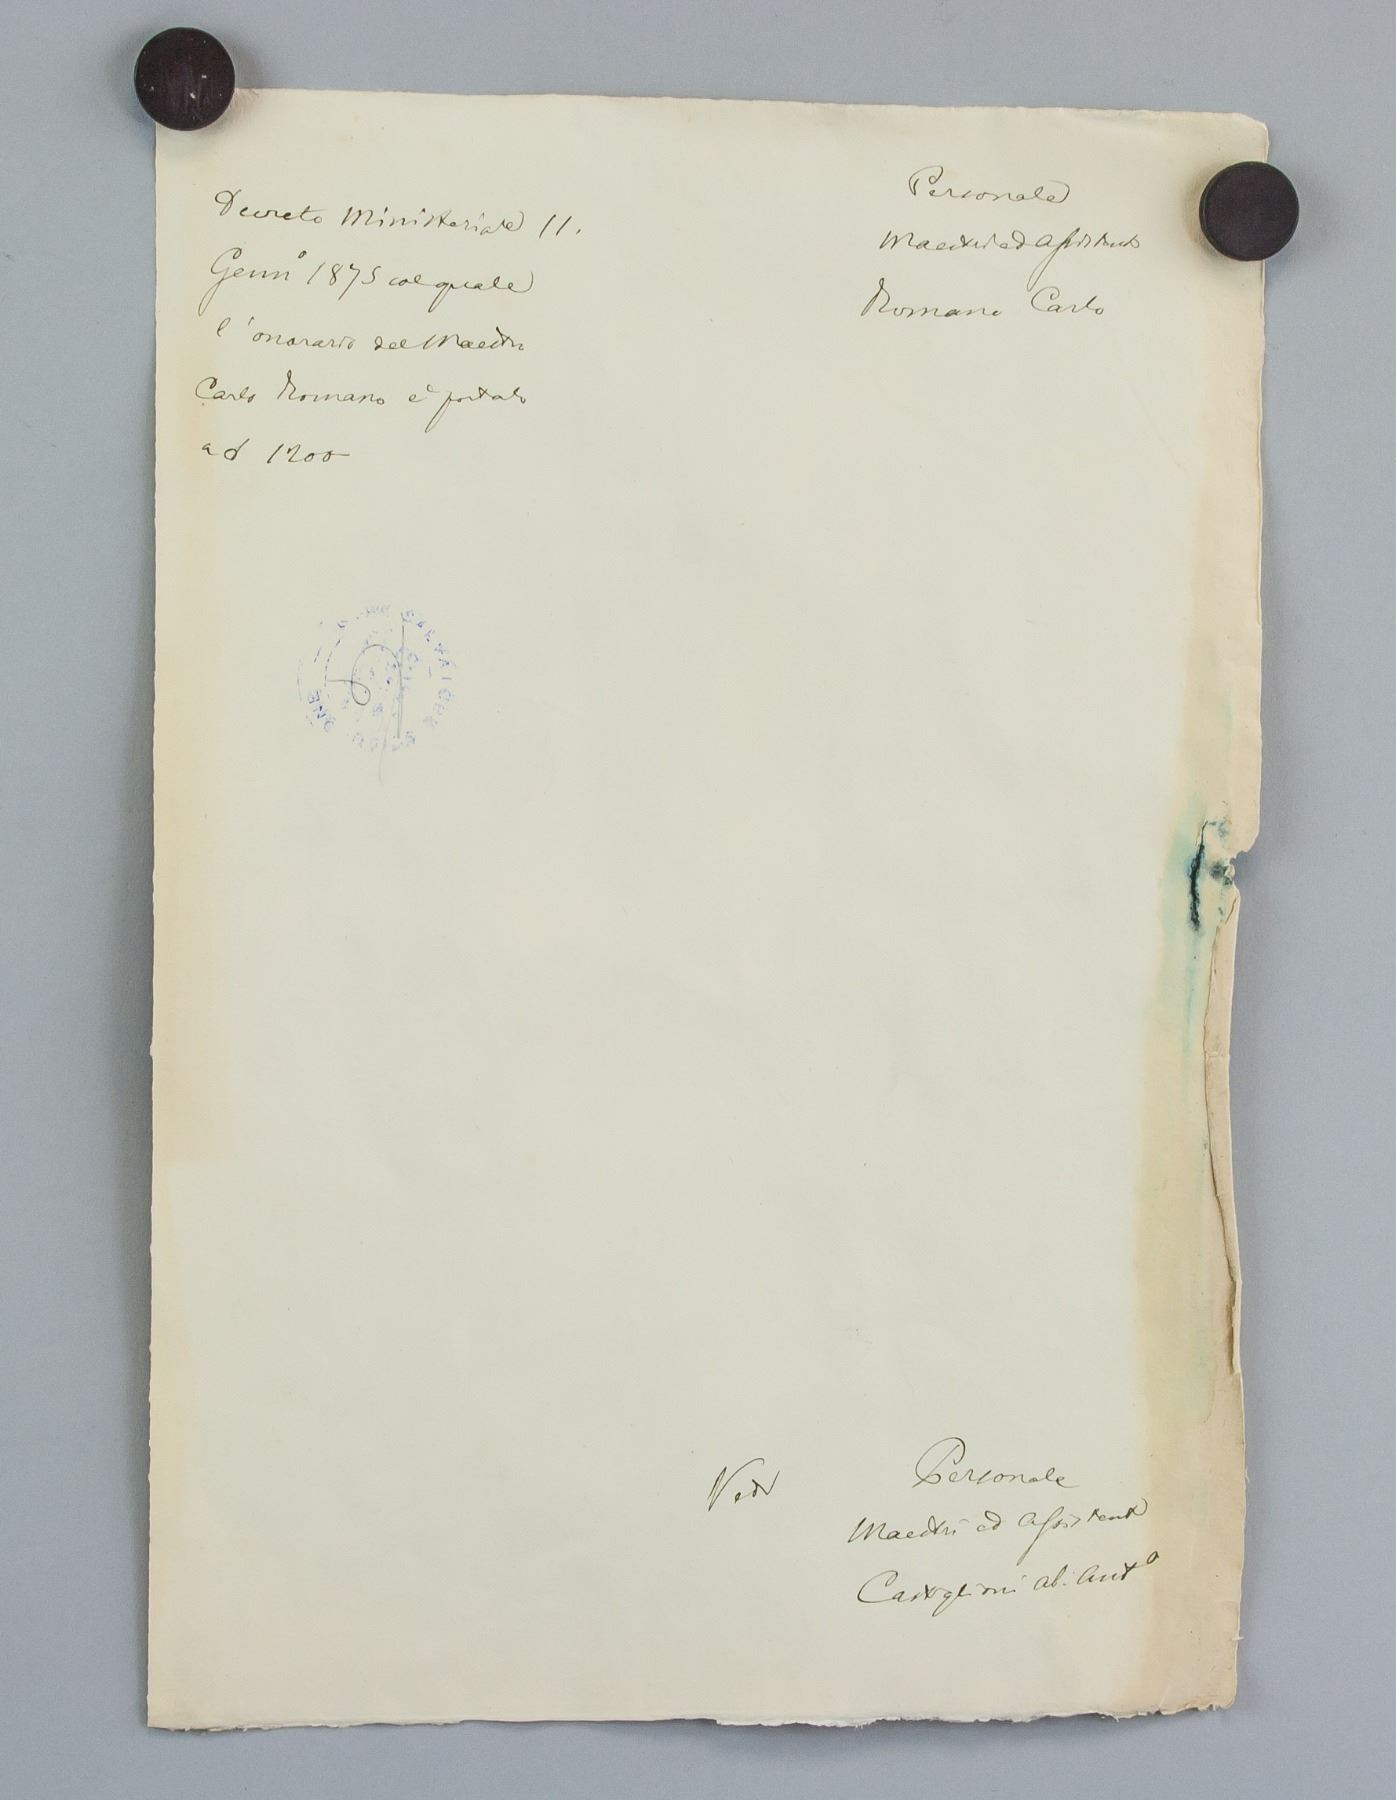 Decreto Ministeriale 11.
Genn° 1875 col quale
l'onorario del Maestro
Carlo Romano è portato
ad 1200
Personale
Maestri ed Assistenti
Romano Carlo
Vedi
Personale
Maestri ed Assistenti
Castiglioni ab. Ant°